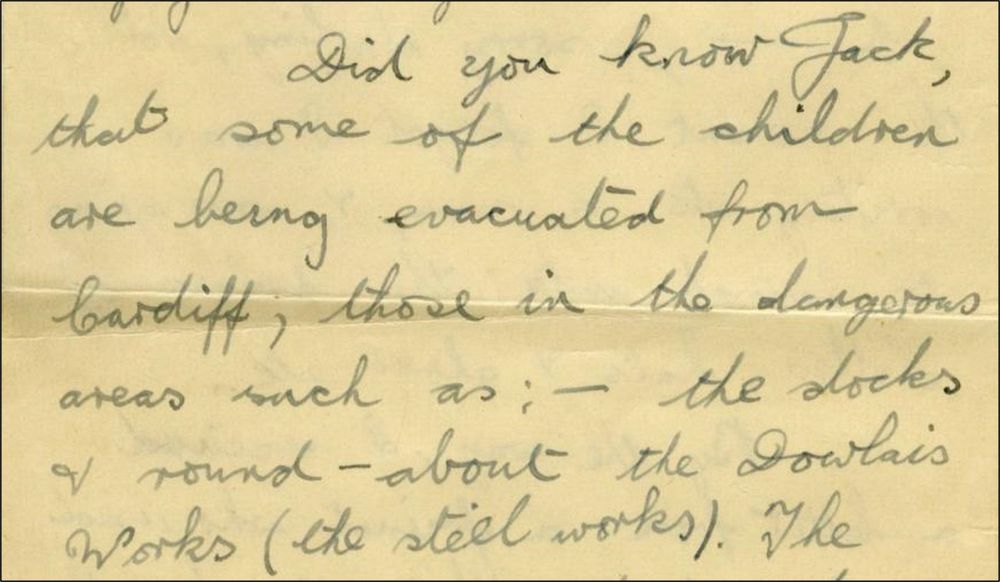 Did you know Jack,
that some of the children
are being evacuated from
Cardiff; those in the dangerous
areas such as:— the docks
& round-about the Dowlais
Works (the steel works). The